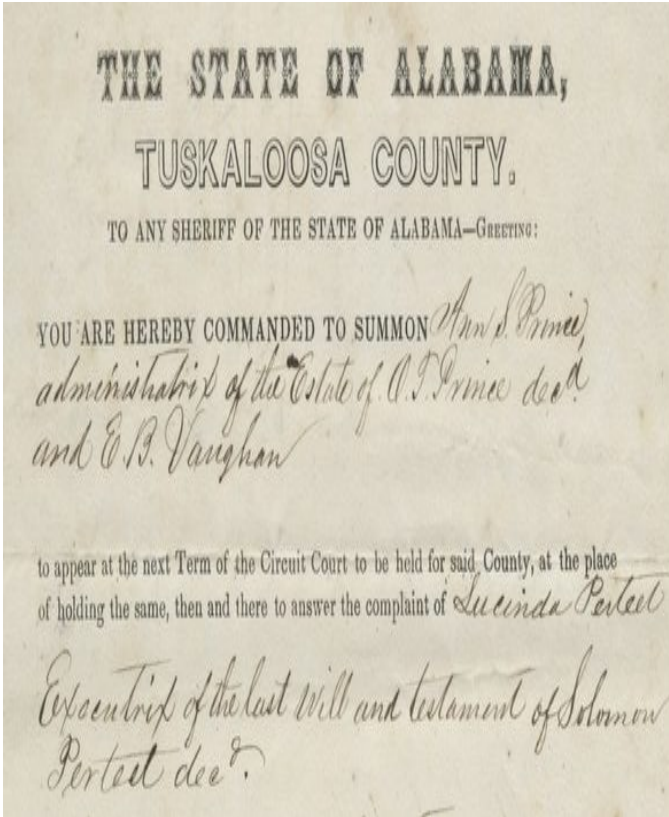 THE STATE OF ALABAMA,
TUSKALOOSA COUNTY.
TO ANY SHERIFF OF THE STATE OF ALABAMA—GREETING:
YOU ARE HEREBY COMMANDED TO SUMMON Ann S. Prince,
administratrix of the Estate of O.T. Prince decd
and E.B. Vaughan
to appear at the next Term of the Circuit Court to be held for said County, at the place
of holding the same, then and there to answer the complaint of Lucinda Perteet
Executrix of the last Will and testament of Solomon
Perteet decd.